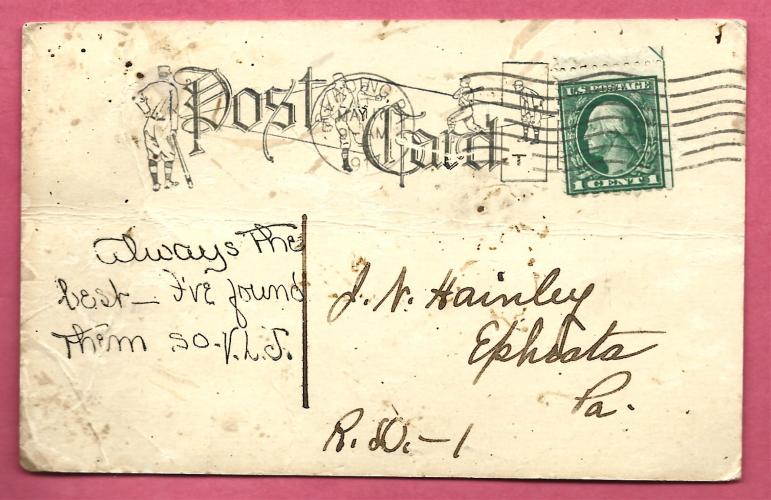 Post Card
READING,
MAY
U.S. POSTAGE
1 CENT 1
Always The
best— I've found
Them so - V.L.S.
J. N. Hainley
Ephrata
Pa.
R. D. - 1